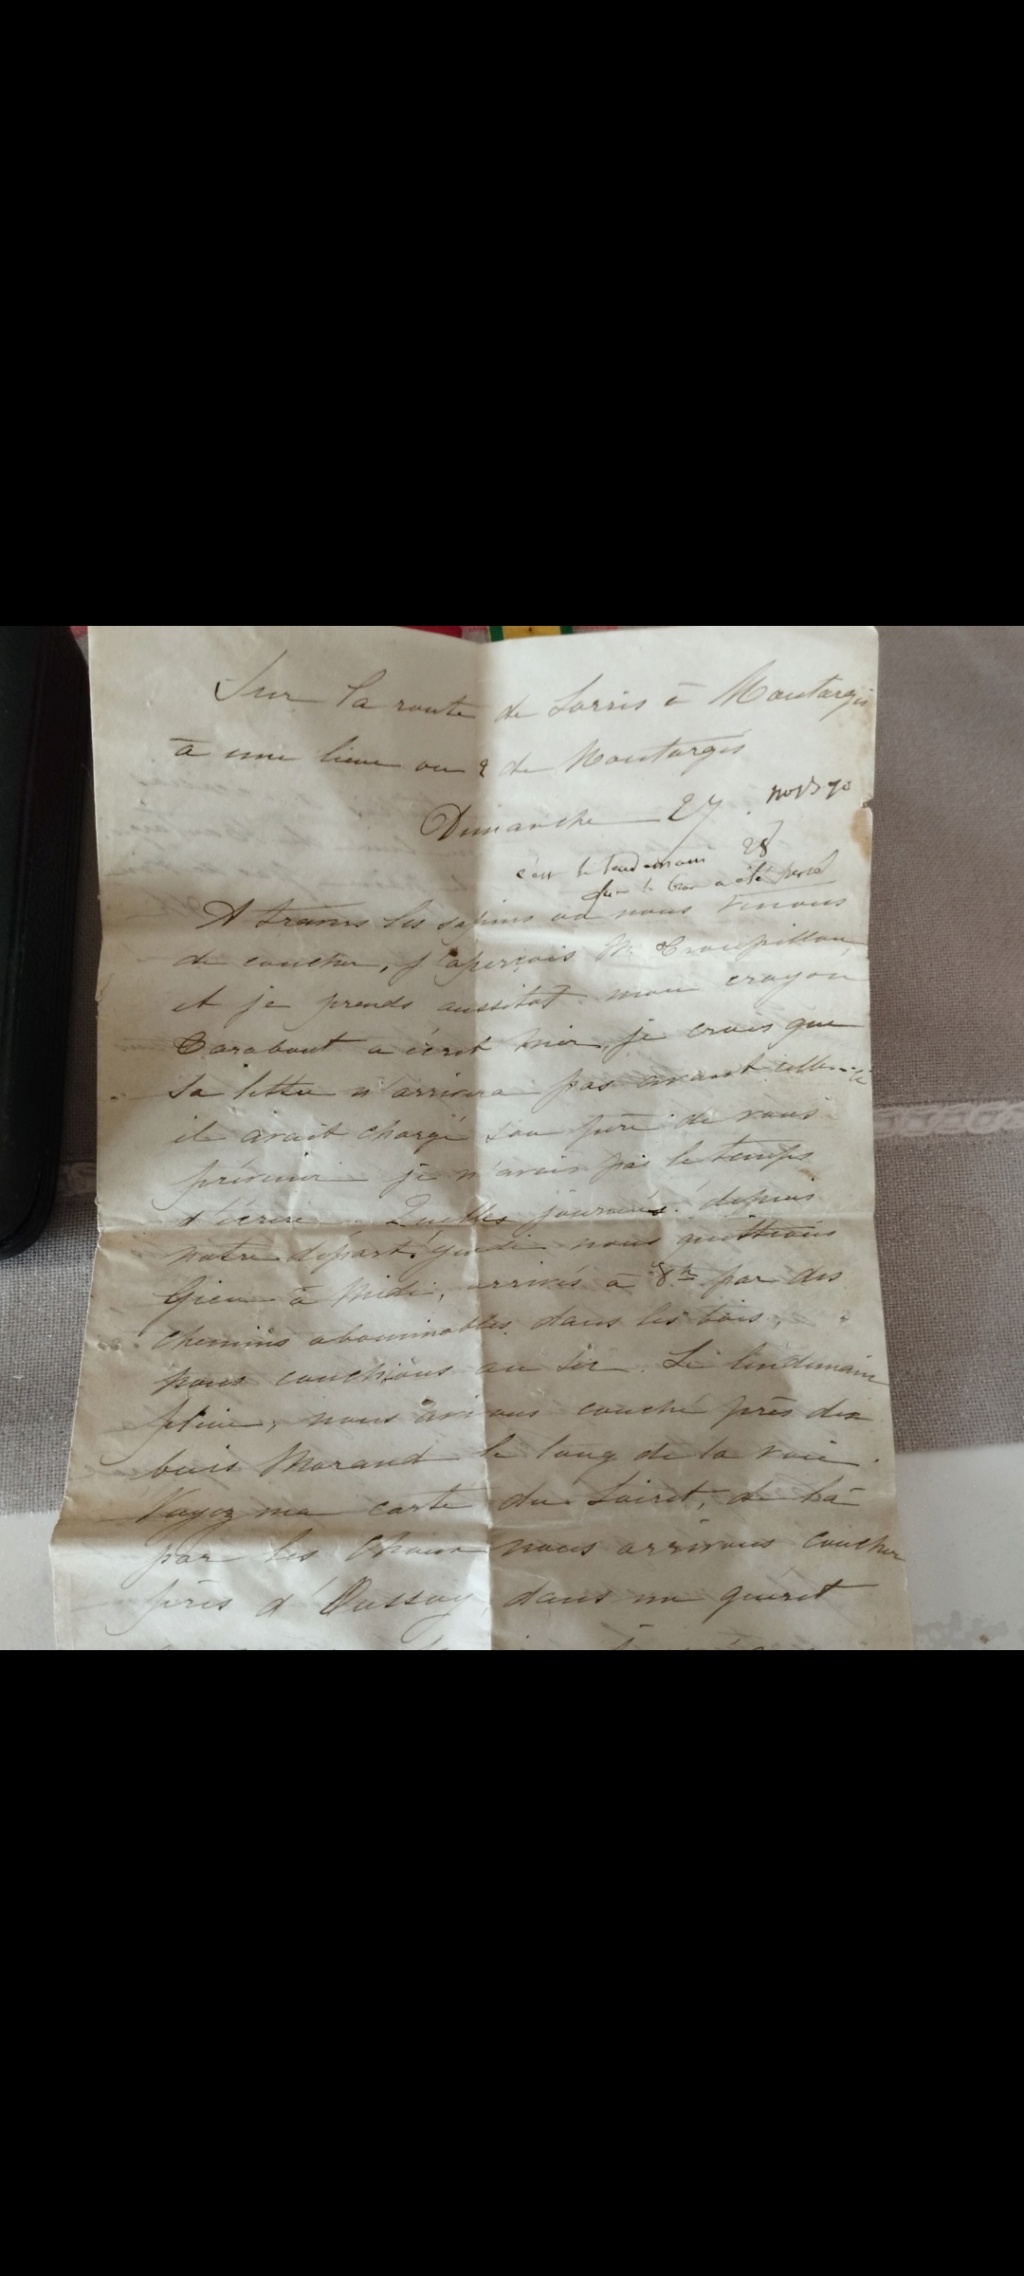 Sur la route de Lorris à Montargis
à une lieue ou 2 de Montargis
Dimanche 27 nov 70
c'est le lendemain 28
que le bras a été
A travers les sapins où nous venons
de coucher, j'aperçois M. Croupillon,
et je prends aussitôt mon crayon
Carabout a écrit hier, je crois que
sa lettre n'arrivera pas avant celle-ci
il avait chargé son père de vous
prévenir je n'avais pas le temps
d'écrire. Quelles journées depuis
notre départ. Jeudi nous quittions
Gien à Midi, arrivés à 8h par des
chemins abominables dans les bois,
nous couchions au sec. Le lendemain
pluie, nous avions couché près des
buis Morand le long de la voie.
Voyez ma carte du Loiret, de là
par les Choux nous arrivons coucher
près d'Oussoy, dans un guéret